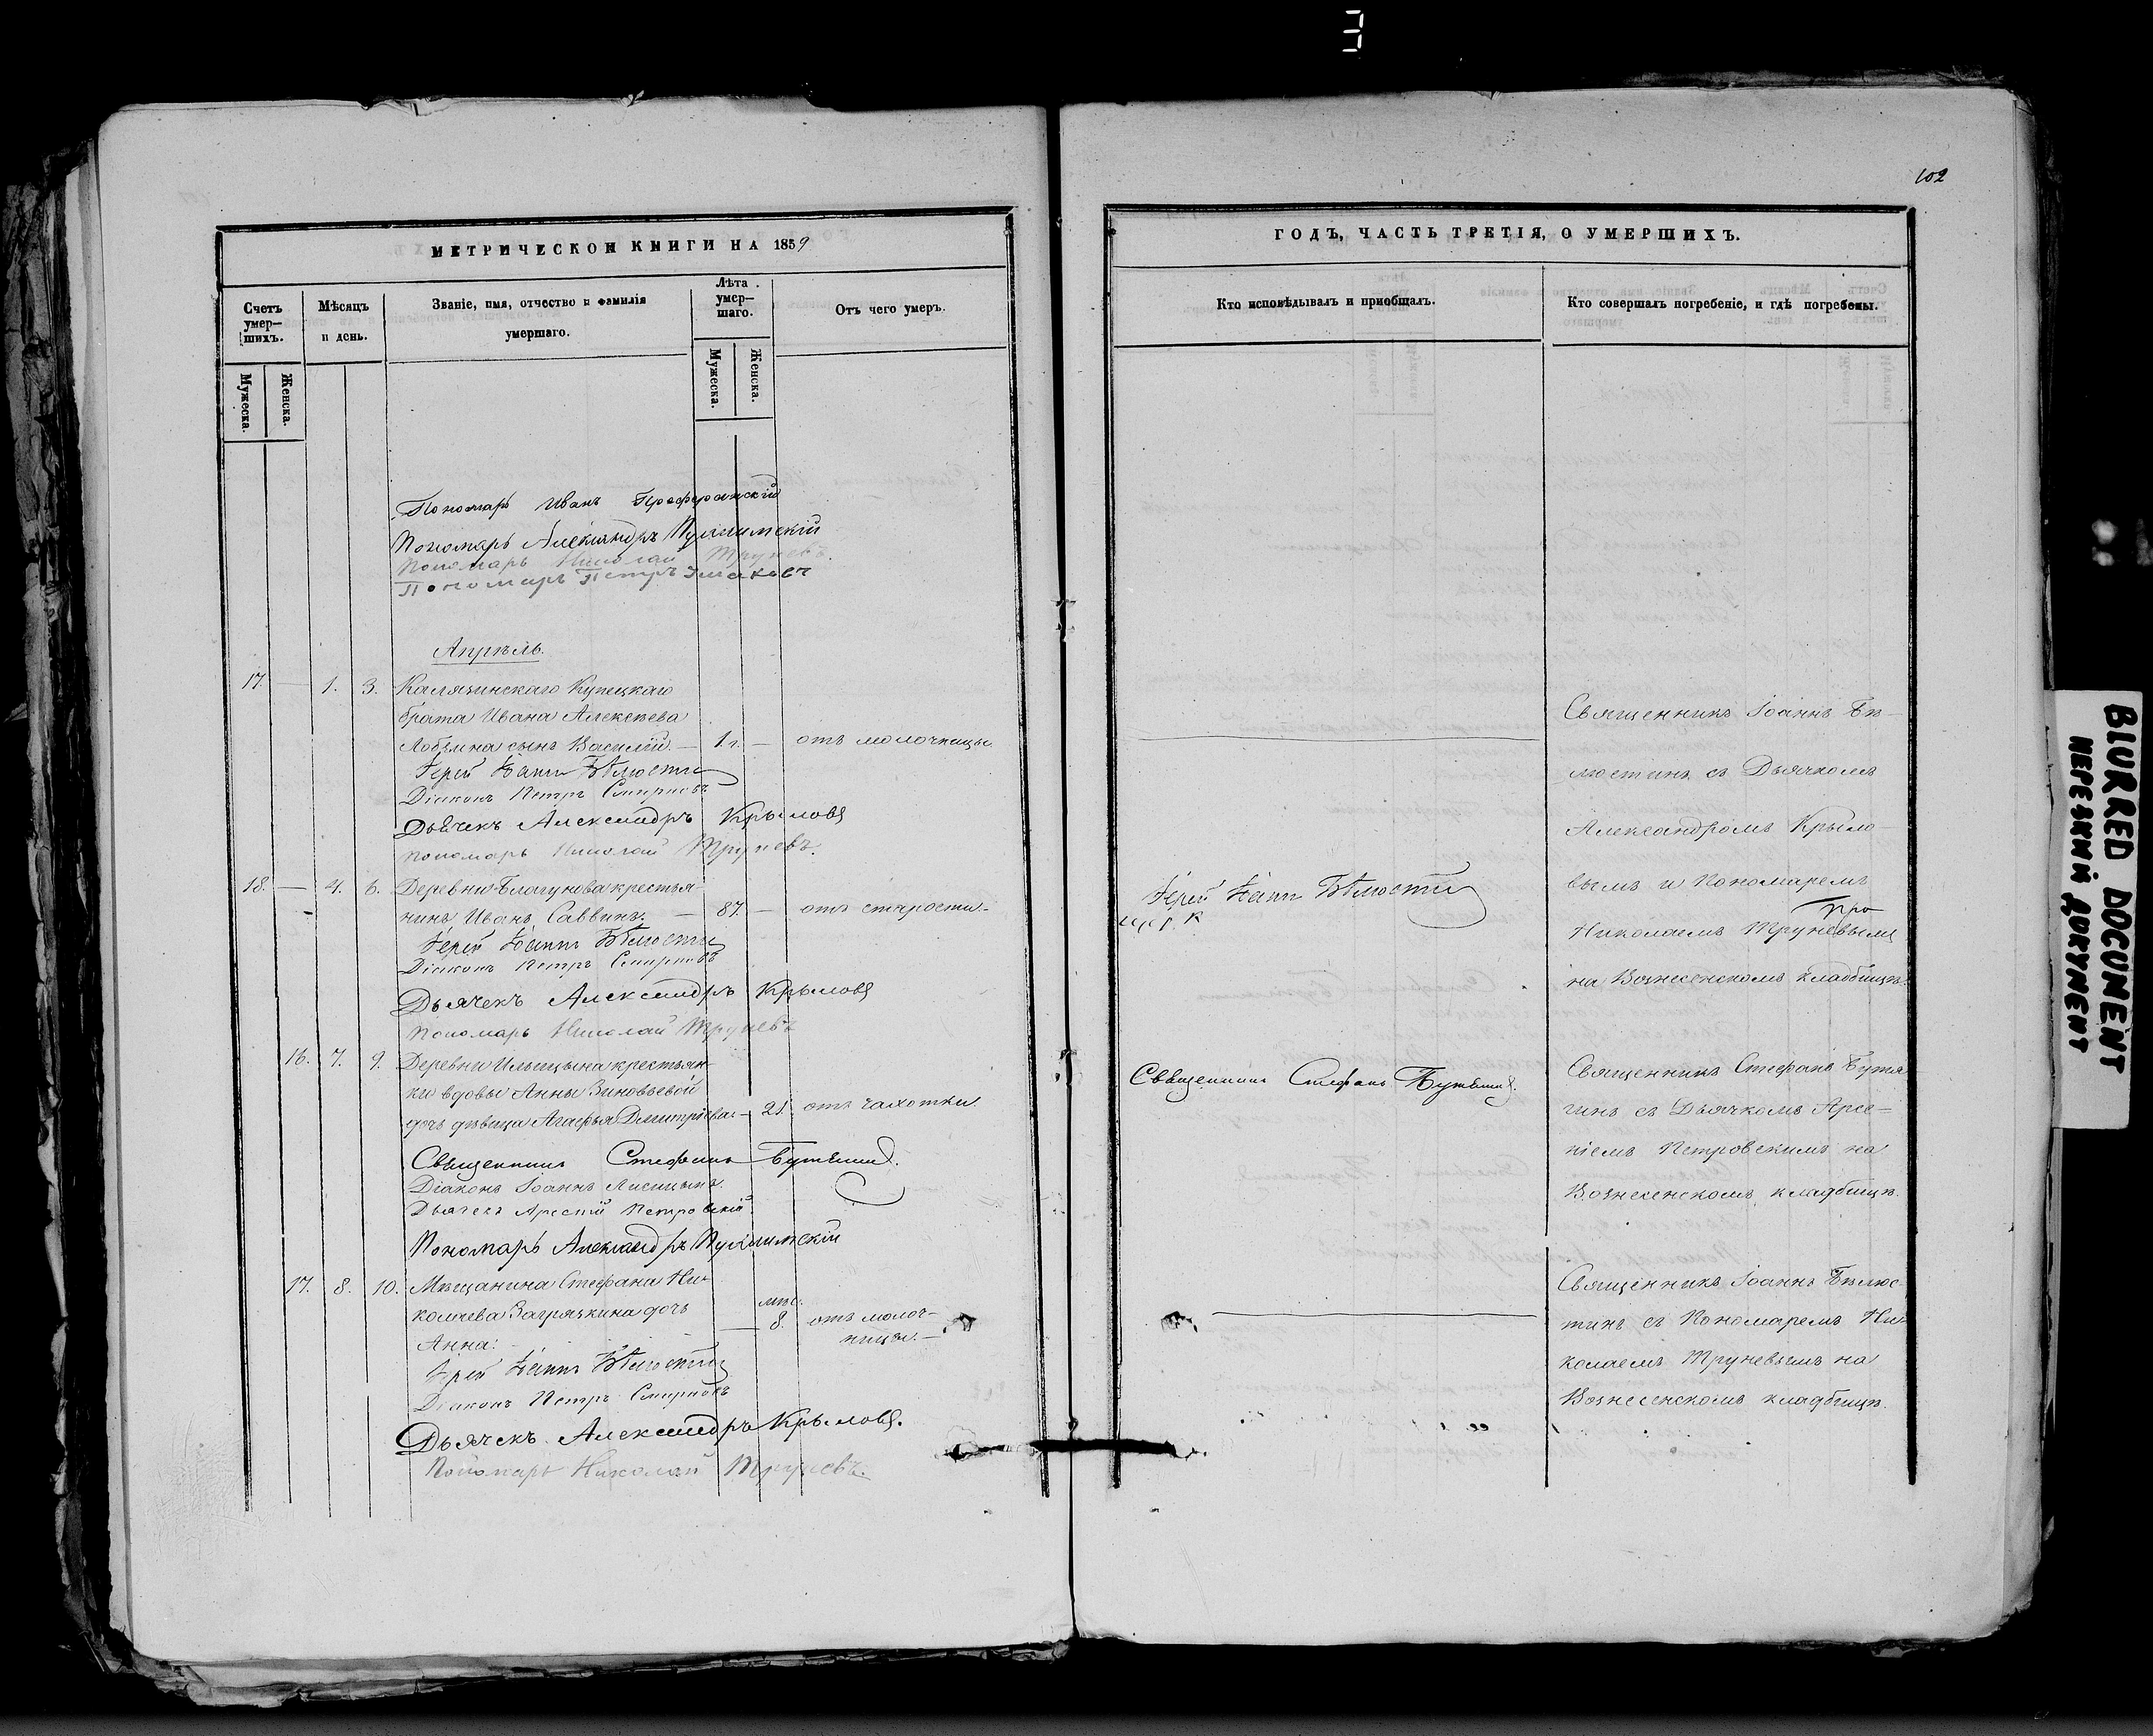 102
МЕТРИЧЕСКОЙ КНИГИ НА 1859
Счетъ умер—шихъ.
Мѣсяцъ и день.
Званіе, имя, отчество и фамилія
умершаго.
Лѣта умер—шаго.
Отъ чего умеръ.
Мужеска.
Женска.
Мужеска.
Женска.
Пономарь Иванъ
Пономарь Александръ
Пономарь Николай Труневъ
Пономарь Петръ
Апрѣль.
17. — 1. 3. Калязинскаго Купецкаго
брата Ивана Алексѣева
сынъ Василій. — 1 г. — отъ молочницы.
Іерей Іоаннъ Бѣлюстинъ
Діаконъ Петръ Смирновъ
Дьячекъ Александръ Крыловъ
Пономарь Николай Труневъ.
18. — 4. 6. Деревни крестья-
нинъ Иванъ Саввинъ. — 87. — отъ старости.
Іерей Іоаннъ Бѣлюстинъ
Діаконъ Петръ Смирновъ
Дьячекъ Александръ Крыловъ
Пономарь Николай Труневъ
16. 7. 9. Деревни крестьян-
ки вдовы Анны Зиновьевой
дочь дѣвица Агафья Дмитріева — 21. отъ чахотки
Священникъ Стефанъ Бутягинъ.
Діаконъ Іоаннъ Лисицынъ.
Дьячекъ Арсеній Петровскій
Пономарь Александръ
17. 8. 10. Мѣщанина Стефана Ни-
колаева Загрязкина дочь
Анна: — мѣс. 8. отъ молоч-
ницы. —
Іерей Іоаннъ Бѣлюстинъ
Діаконъ Петръ Смирновъ
Дьячекъ Александръ Крыловъ.
Пономарь Николай Труневъ.
ГОДЪ, ЧАСТЬ ТРЕТІЯ, О УМЕРШИХЪ.
Кто исповѣдывалъ и приобщалъ.
Кто совершалъ погребеніе, и гдѣ погребены.
Священникъ Іоаннъ Бѣ-
люстинъ съ Дьячкомъ
Александромъ Крыло-
вымъ и Пономаремъ
Николаемъ Труневымъ
на Вознесенскомъ кладбищѣ.
Іерей Іоаннъ Бѣлюстинъ
Священникъ Стефанъ Бутягинъ.
Священникъ Стефанъ Бутя
гинъ съ Дьячкомъ Арсе-
ніемъ Петровскимъ на
Вознесенскомъ кладбищѣ.
Священникъ Іоаннъ Бѣлюс-
тинъ съ Пономаремъ Ни-
колаемъ Труневымъ на
Вознесенскомъ кладбищѣ.
BLURRED DOCUMENT
НЕРЕЗКИЙ ДОКУМЕНТ